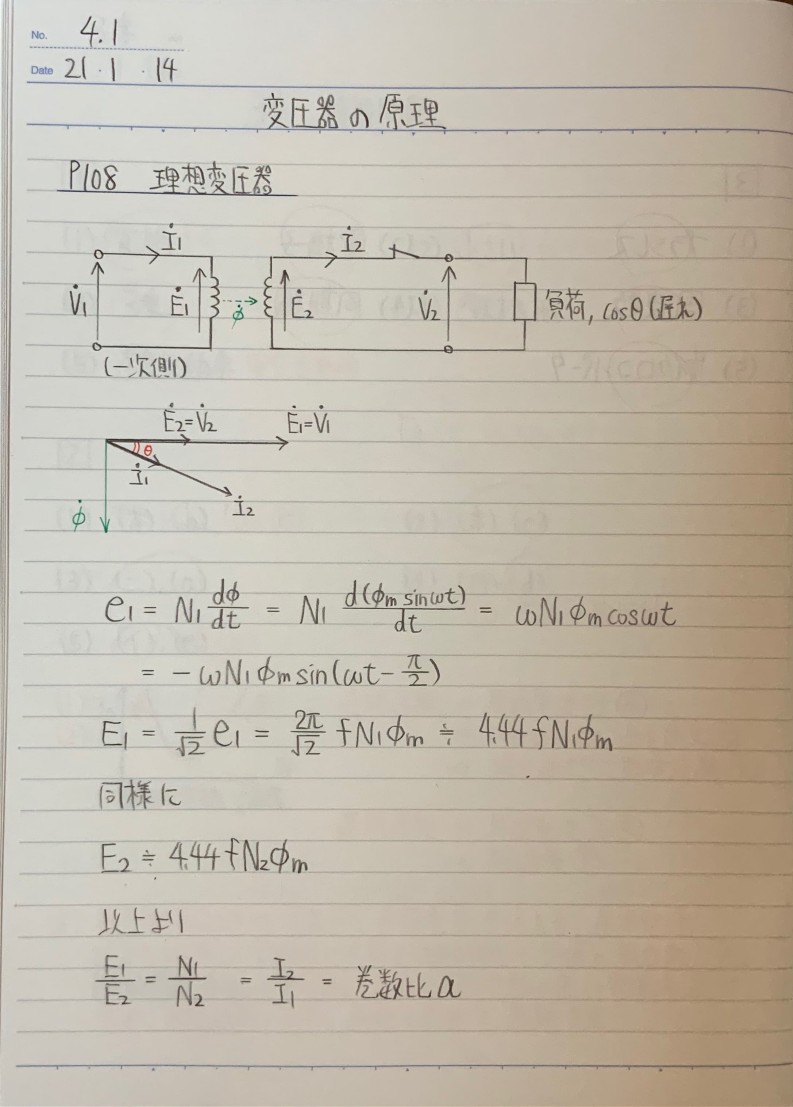 No. 4.1
Date 21・1・14
変圧器の原理
P108 理想変圧器
İ₁ İ₂
V̇₁ Ė₁ φ̇ Ė₂ V̇₂ 負荷, cosθ(遅れ)
(一次側)
Ė₂=V̇₂ Ė₁=V̇₁
θ
İ₁
İ₂
φ̇
e₁ = N₁ dφ/dt = N₁ d(φm sinωt)/dt = ωN₁φm cosωt
= -ωN₁φm sin(ωt-π/2)
E₁ = 1/√2 e₁ = 2π/√2 fN₁φm ≒ 4.44fN₁φm
同様に
E₂ ≒ 4.44fN₂φm
以上より
E₁/E₂ = N₁/N₂ = I₂/I₁ = 巻数比a